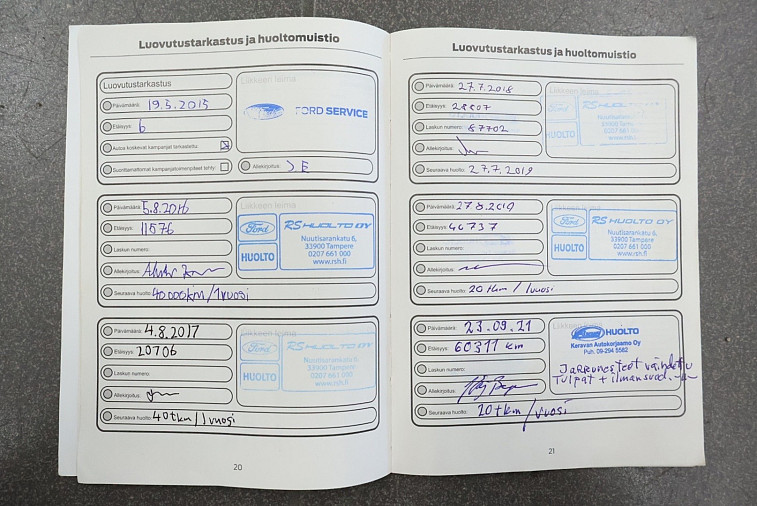 Luovutustarkastus ja huoltomuistio
Luovutustarkastus
Päivämäärä: 19.5.2015
Etäisyys: 6
Autoa koskevat kampanjat tarkastettu:
Suorittamattomat kampanjatoimenpiteet tehty:
Liikkeen leima
FORD SERVICE
Allekirjoitus:
Päivämäärä: 5.8.2016
Etäisyys: 11576
Laskun numero:
Allekirjoitus:
Seuraava huolto: 40 000km/1vuosi
Liikkeen leima
Ford
RS HUOLTO OY
HUOLTO
Nuutisarankatu 6,
33900 Tampere
0207 661 000
www.rsh.fi
Päivämäärä: 4.8.2017
Etäisyys: 20706
Laskun numero:
Allekirjoitus:
Seuraava huolto: 40tkm/1vuosi
Liikkeen leima
Ford
RS HUOLTO OY
HUOLTO
Nuutisarankatu 6,
33900 Tampere
0207 661 000
www.rsh.fi
20
Luovutustarkastus ja huoltomuistio
Päivämäärä: 27.7.2018
Etäisyys: 28807
Laskun numero: 87702
Allekirjoitus:
Seuraava huolto: 27.7.2019
Liikkeen leima
Ford
RS HUOLTO
HUOLTO
33900 Tampere
0207 661
Päivämäärä: 27.8.2019
Etäisyys: 40737
Laskun numero:
Allekirjoitus:
Seuraava huolto: 20 tkm / 1vuosi
Ford
RS HUOLTO OY
HUOLTO
Nuutisarankatu 6,
33900 Tampere
0207 661 000
www.rsh.fi
Päivämäärä: 23.09.21
Etäisyys: 60311 km
Laskun numero:
Allekirjoitus:
Seuraava huolto: 20tkm/vuosi
HUOLTO
Keravan Autokorjaamo Oy
Puh. 09-294 5582
Jarrunesteet vaihdettu
Tulpat + ilmansuod.
21